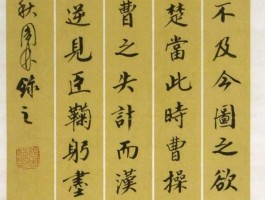 不及今圖之欲
楚當此時曹操
曹之失計而漢
逆見臣鞠躬盡
秋周
之